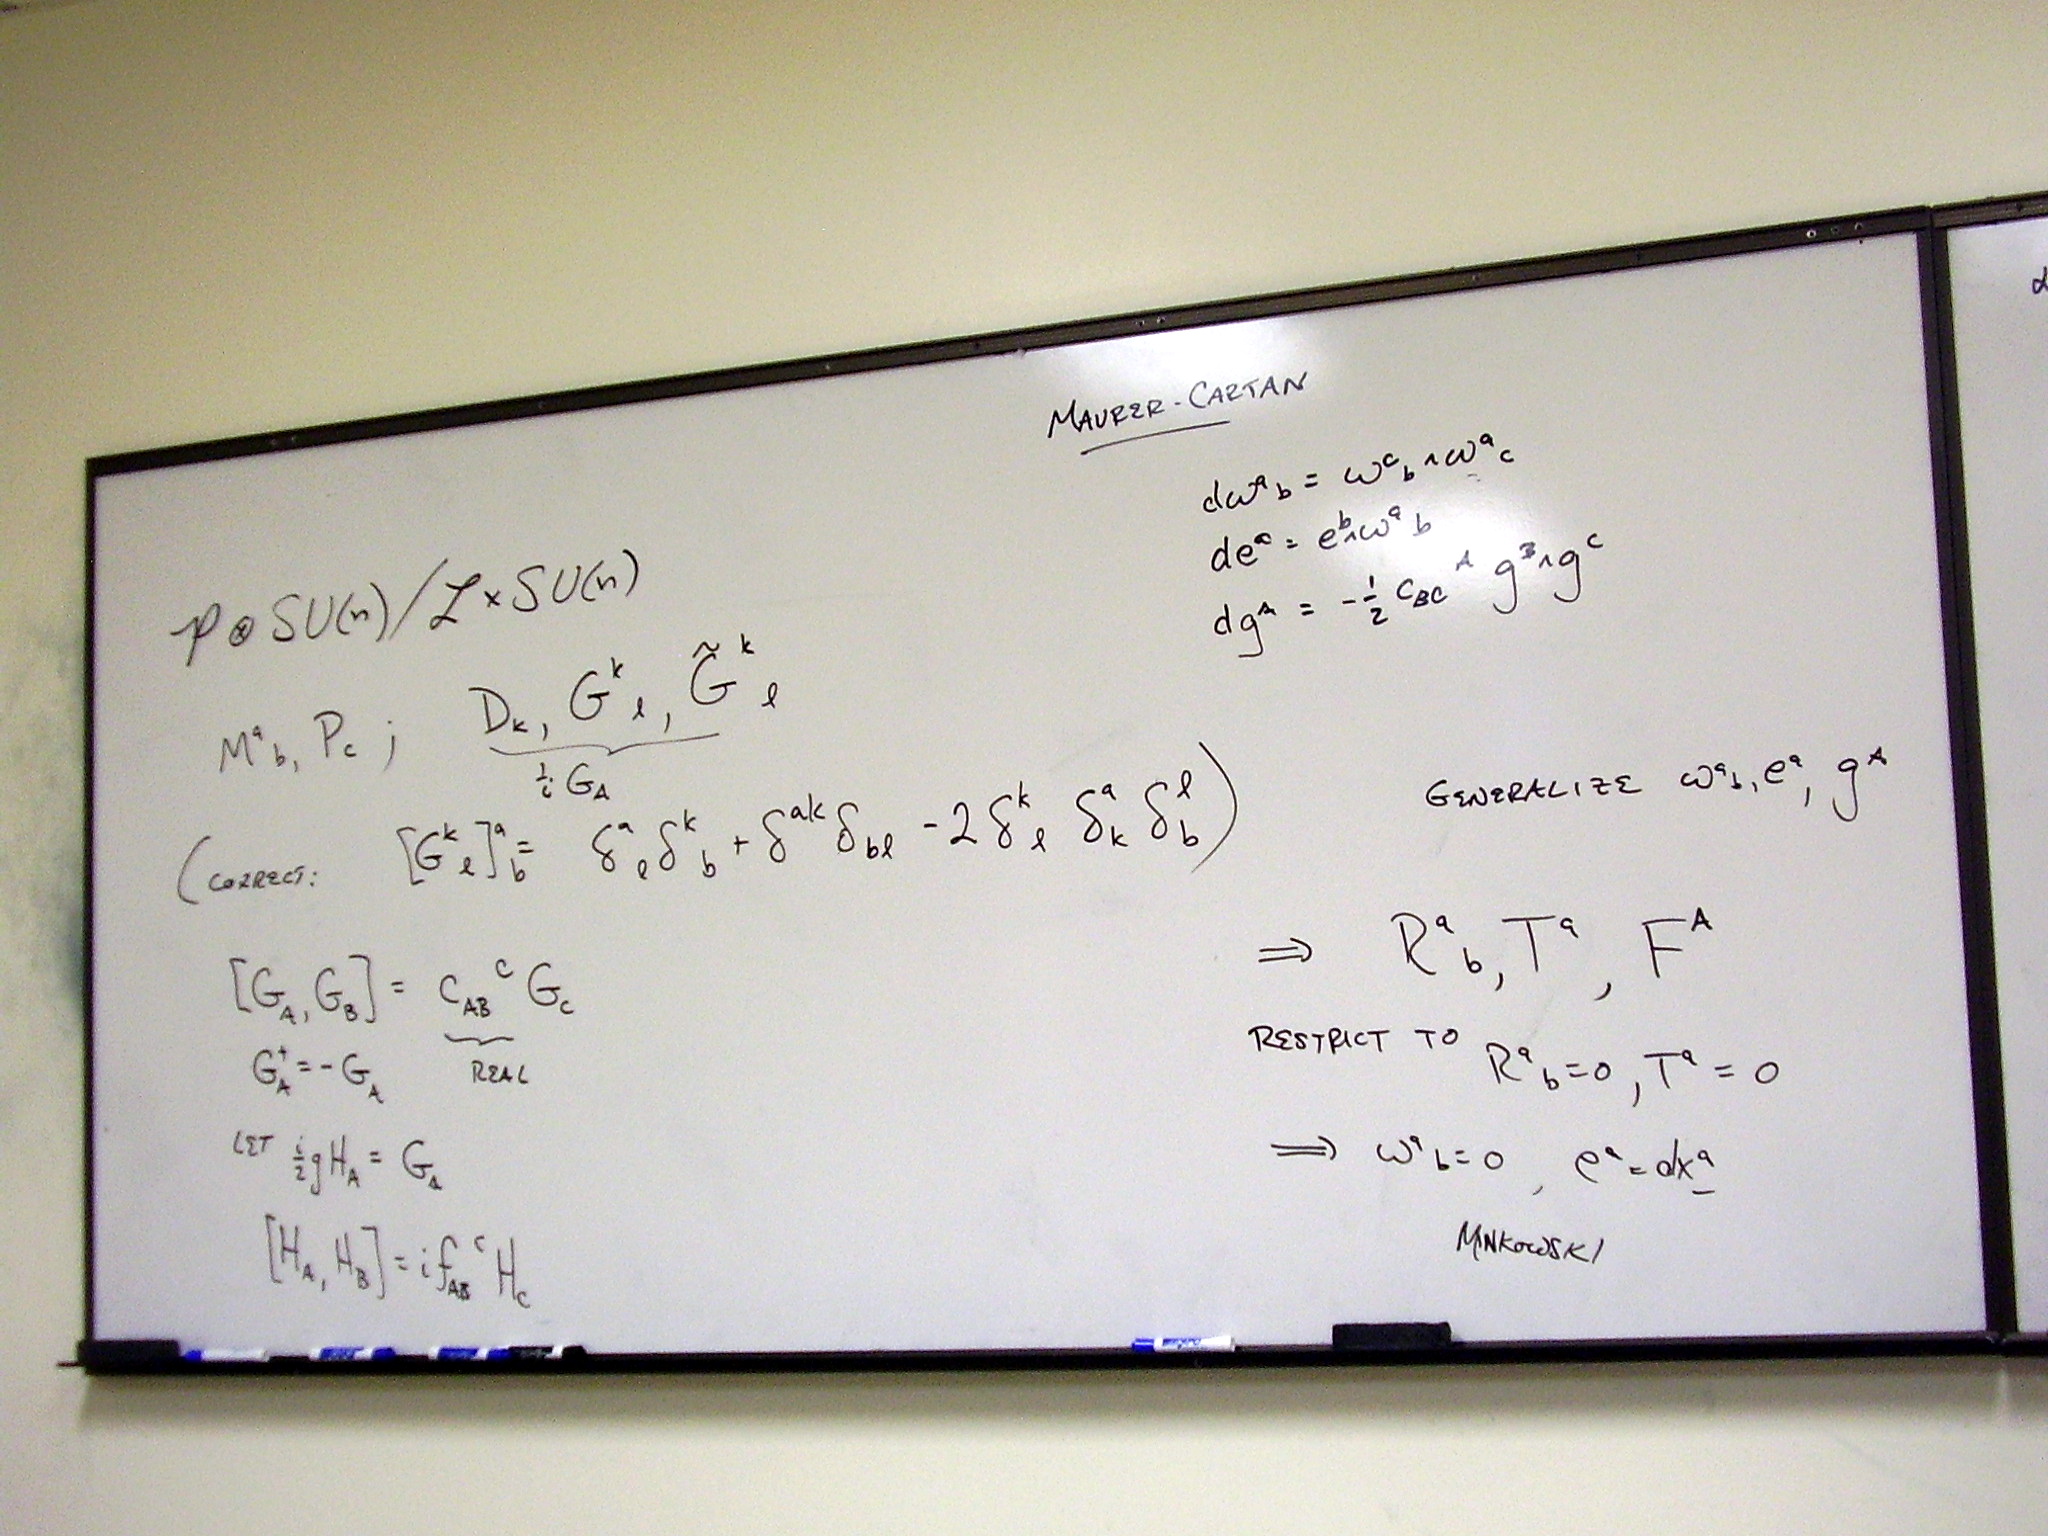 MAURER-CARTAN
dω^a_b = ω^c_b ∧ ω^a_c
de^a = e^b ∧ ω^a_b
dg^A = -½ c_{BC}^A g^B ∧ g^C
𝒫 ⊗ SU(n) / ℒ × SU(n)
M^a_b, P_c ; D_k, G^k_l, G̃^k_l
1/i G_A
(CORRECT: [G^k_l]^a_b = δ^a_l δ^k_b + δ^{ak} δ_{bl} - 2δ^k_l δ^a_k δ^l_b)
[G_A, G_B] = c_{AB}^C G_C
REAL
G_A^† = -G_A
LET i/2 g H_A = G_A
[H_A, H_B] = i f_{AB}^C H_C
GENERALIZE ω^a_b, e^a, g^A
⇒ R^a_b, T^a, F^A
RESTRICT TO R^a_b = 0, T^a = 0
⇒ ω^a_b = 0, e^a = dx^a
MINKOWSKI